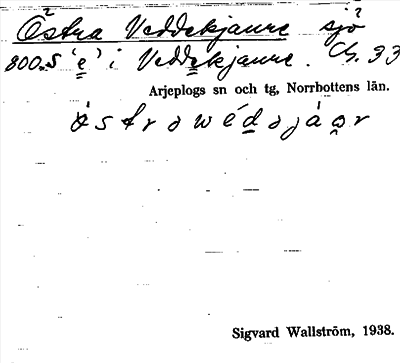 Östra Veddekjaure sjö
800.5 'e' i Veddekjaure. Ch. 33
Arjeplogs sn och tg, Norrbottens län.
Sigvard Wallström, 1938.